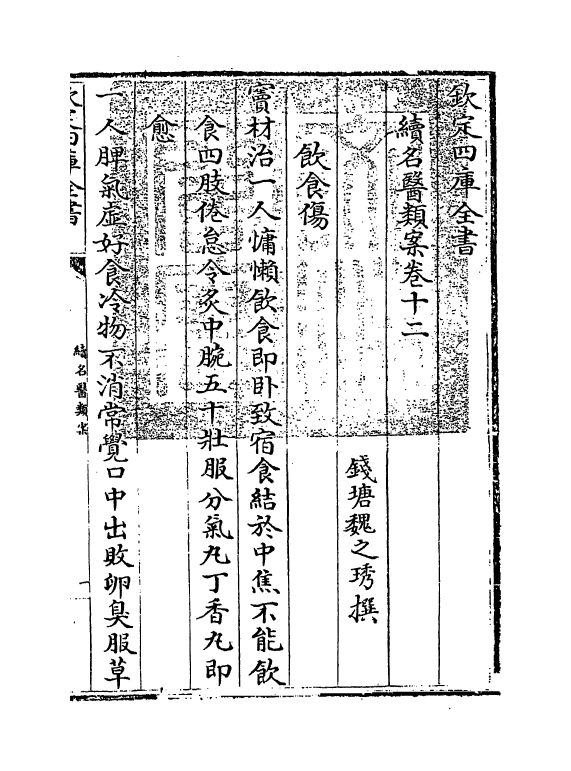 欽定四庫全書
續名醫類案卷十二
錢塘魏之琇撰
飲食傷
竇材治一人慵懶飲食即卧致宿食結於中焦不能飲
食四肢倦怠令灸中脘五十壯服分氣丸丁香丸即
愈
一人脾氣虛好食冷物不消常覺口中出敗卵臭服草
欽定四庫全書
續名醫類案
一